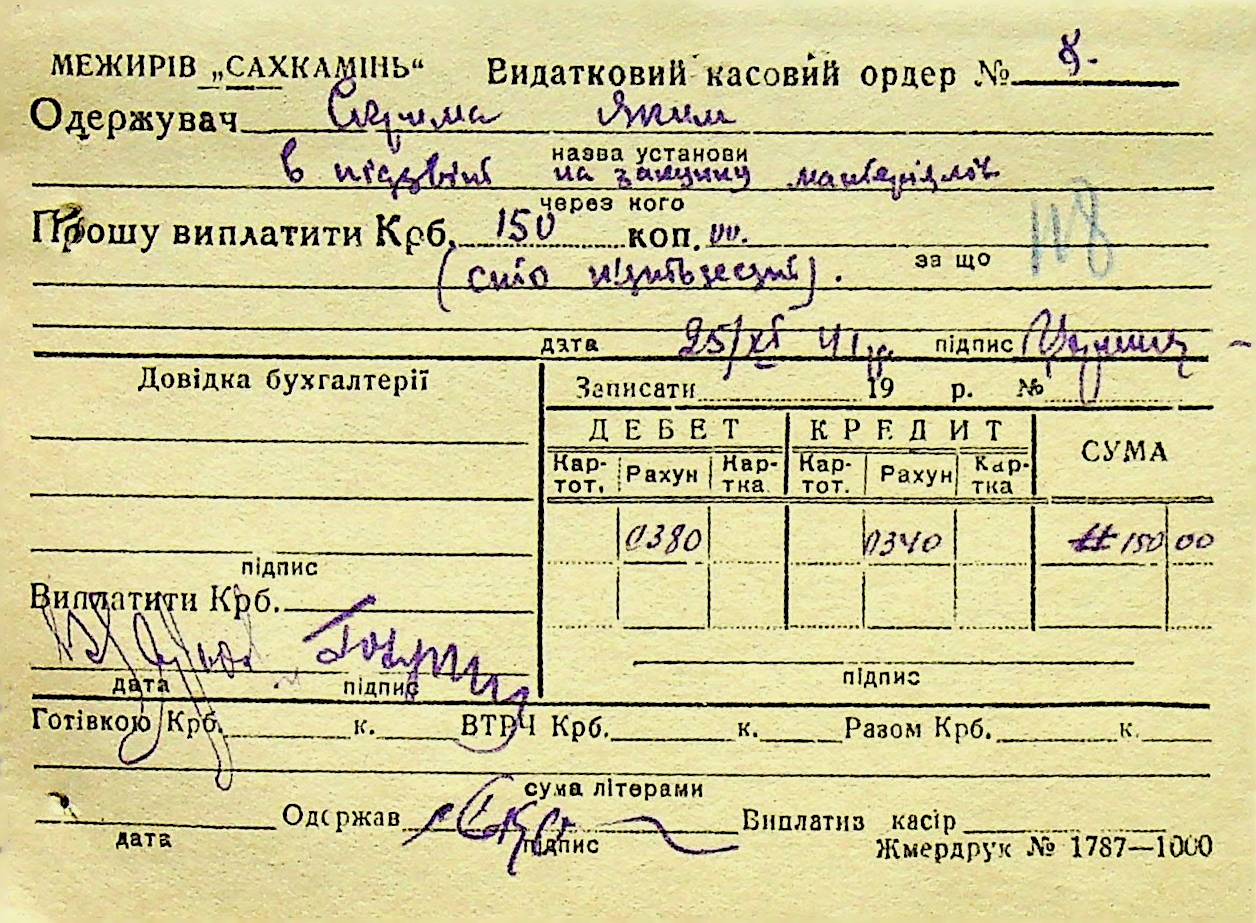 МЕЖИРІВ „САХКАМІНЬ“ Видатковий касовий ордер № 8.
Одержувач Яким
назва установи
в підзвіт на закупку матеріялів
через кого
Прошу виплатити Крб. 150 коп. 00.
за що
(сто пятьдесят).
дата 25/XI 41 р. підпис
Довідка бухгалтерії
Записати 19 р. №
ДЕБЕТ КРЕДИТ СУМА
Кар-тот. Рахун Кар-тка Кар-тот. Рахун Кар-тка
0380 0340 150 00
підпис
Виплатити Крб.
дата підпис
підпис
Готівкою Крб. к. ВТРЧ Крб. к. Разом Крб. к.
сума літерами
Одержав Виплатив касір
дата підпис
Жмердрук № 1787—1000